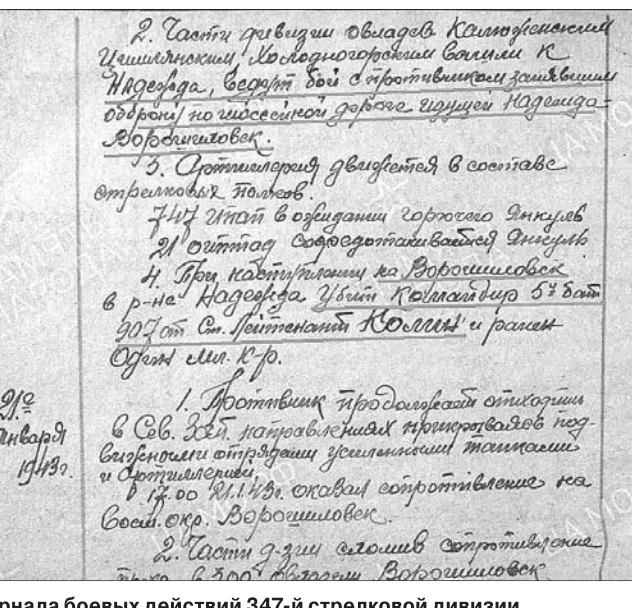 2. Части дивизии овладев Калюженским
Цимлянским, Холодногорским вышли к
Надежда, ведут бой с противником занявшим
оборону по шоссейной дороге идущей Надежда-
Ворошиловск.
3. Артиллерия движется в составе
стрелковых полков.
747 в ожидании горючего Янкуль
21 сосредотачивается Янкуль
4. При наступлении на Ворошиловск
в р-не Надежда Убит Командир 5й бат
907 ап Ст. Лейтенант Колин и ранен
Один мл. к-р.
21е
января
1943г.
1. Противник продолжает отходить
в Сев. Зап. направлениях прикрываяс под-
вижными отрядами усиленными танками
и артиллерией.
В 17.00 21.1.43г. оказал сопротивление на
Вост. окр. Ворошиловск.
2. Части д-зии сломив сопротивление
овладели Ворошиловск
рнала боевых действий 347-й стрелковой дивизии